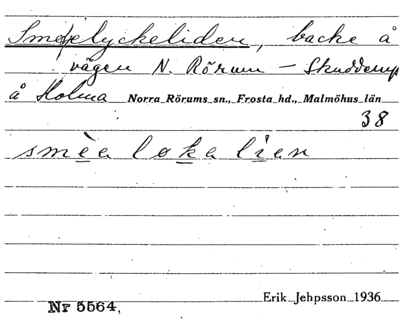 Smedjelyckeliden, backe å
vägen N. Rörum – Skuddarp
å Holma Norra Rörums sn., Frosta hd., Malmöhus län
38
smèa løkalien
Nr 5564. Erik Jehpsson 1936